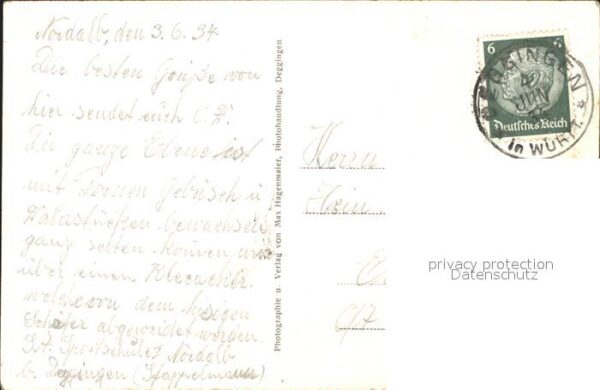 Nordalb, den 3.6.34
Die besten Grüße von
hier sendet euch
Die ganze Ebene ist
mit Dornen Gebüsch u
bewachsen
ganz selten können wir
über einen Kleeacker
welche von dem hiesigen
Schäfer abgeweidet werden.
S.A. Sportschule Nordalb
b. Deggingen (Happelmann)
Photographie u. Verlag von Max Hagenmaier, Photohandlung, Deggingen
Herrn
Hein
6 6
Deutsches Reich
DEGGINGEN
JUN
in WÜRTT.
privacy protection
Datenschutz